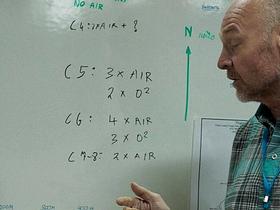 NO AIR
C4: 7 AIR + ?
N
C5: 3 x AIR
2 x O²
C6: 4 x AIR
3 x O²
C7-8: 2 x AIR